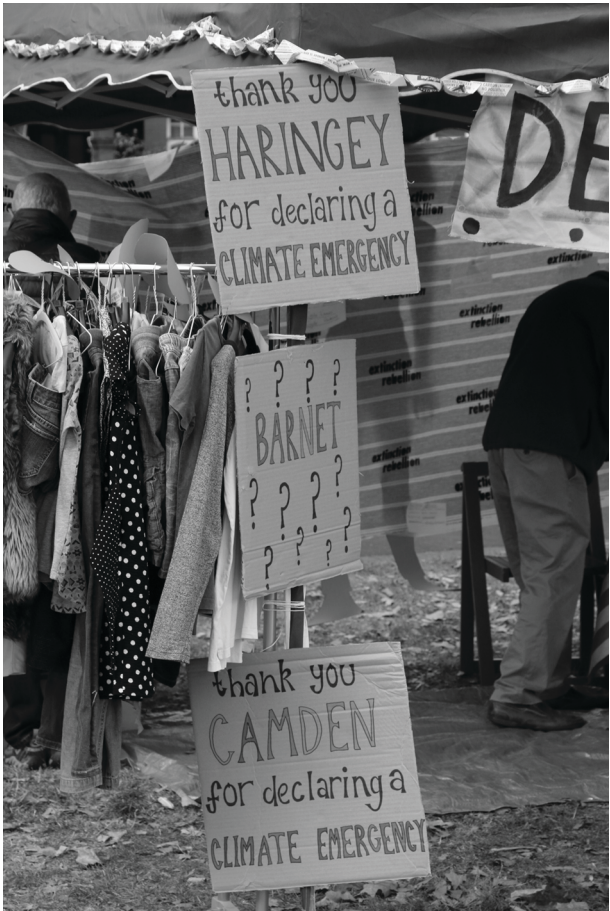 thank you
HARINGEY
for declaring a
CLIMATE EMERGENCY
DE
extinction
rebellion
extinction
rebellion
extinction
rebellion
extinction
rebellion
? ? ? ?
BARNET
? ? ? ?
? ? ? ?
thank you
CAMDEN
for declaring a
CLIMATE EMERGENCY